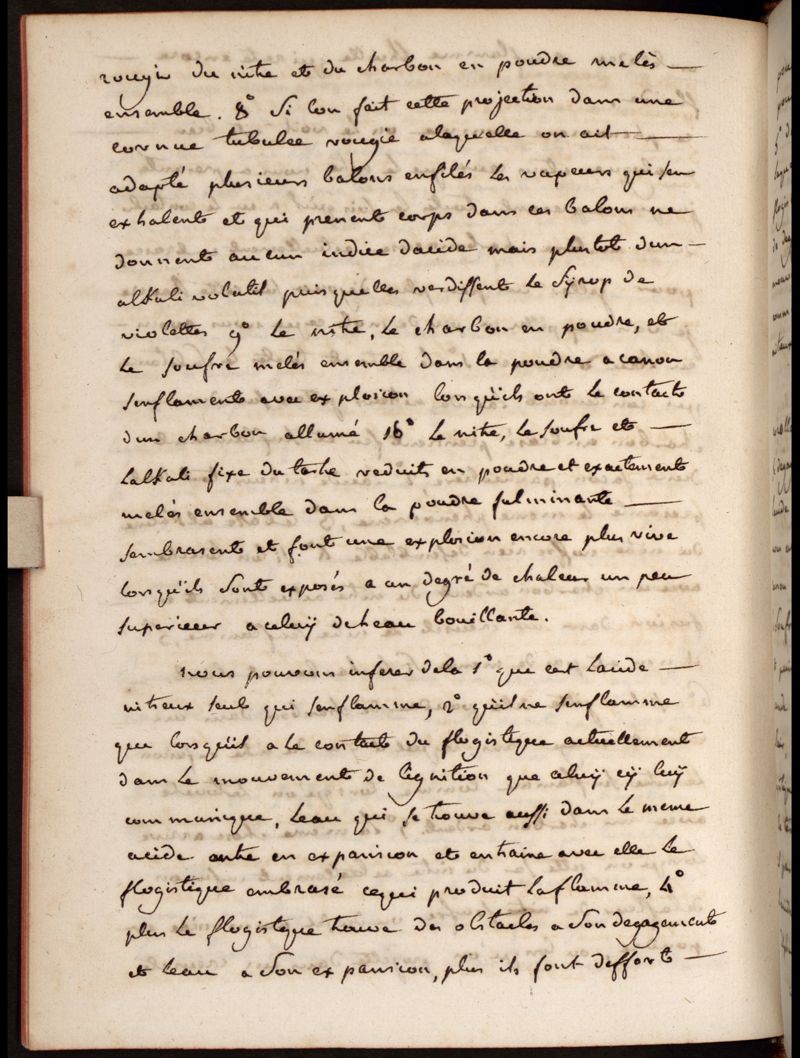 rougir du nitre et du charbon en poudre melés
ensemble. 8° Si lon fait cette projection dans une
cornue tubulee rougie alaquelle on ait
adapté plusieurs balons enfilés les vapeurs qui sen
exhalent et qui prenent corps dans ces balons ne
donnent aucun indice dacide mais plustot dun
alkali volatil puisquelles verdissent le Syrop de
violettes 9° Le nitre, le charbon en poudre, et
le soufre melés ensemble dans la poudre a canon
senflament avec explosion lorsquils ont le contact
dun charbon allumé 10° Le nitre, le soufre et
Lalkali fixe du tartre reduits en poudre et exactement
melés ensemble dans la poudre fulminante
sembrasent et font une explosion encore plus vive
lorsquils sont exposés a un degré de chaleur un peu
superieeur a celuÿ deleau bouillante.
nous pouvons inferer dela 1° que cest Lacide
nitreux seul qui senflamme, 2° quil ne senflamme
que lorsquil a le contact du flogistique actuellement
dans le mouvement de lignition que celuÿ cÿ luÿ
communique, Leau qui se trouve aussi dans le meme
acide entre en expansion et entraine avec elle le
flogistique embrasé cequi produit Laflamme, 4°
plus le flogistique trouve des obstacles a son degagement
et leau a son expansion, plus ils font deffort